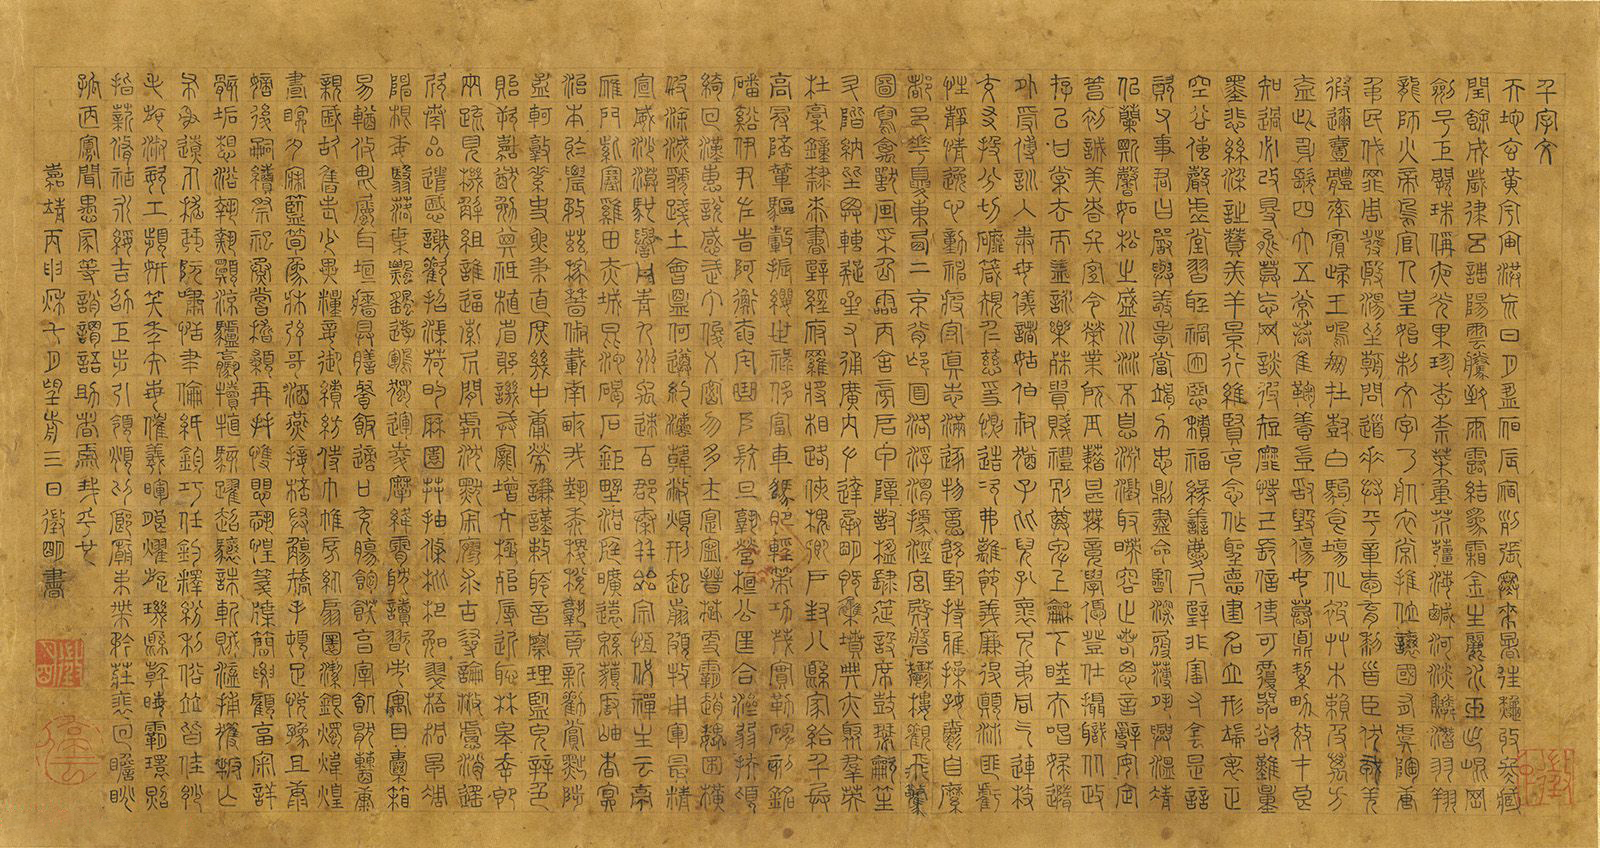 千字文
天地玄黃宇宙洪荒日月盈昃辰宿列張寒來暑往秋收冬藏
閏餘成歲律呂調陽雲騰致雨露結為霜金生麗水玉出崑岡
劍號巨闕珠稱夜光果珍李柰菜重芥薑海鹹河淡鱗潛羽翔
龍師火帝鳥官人皇始制文字乃服衣裳推位讓國有虞陶唐
弔民伐罪周發殷湯坐朝問道垂拱平章愛育黎首臣伏戎羌
遐邇壹體率賓歸王鳴鳳在樹白駒食場化被草木賴及萬方
蓋此身髮四大五常恭惟鞠養豈敢毀傷女慕貞潔男效才良
知過必改得能莫忘罔談彼短靡恃己長信使可覆器欲難量
墨悲絲染詩讚羔羊景行維賢克念作聖德建名立形端表正
空谷傳聲虛堂習聽禍因惡積福緣善慶尺璧非寶寸陰是競
資父事君曰嚴與敬孝當竭力忠則盡命臨深履薄夙興溫凊
似蘭斯馨如松之盛川流不息淵澄取映容止若思言辭安定
篤初誠美慎終宜令榮業所基籍甚無竟學優登仕攝職從政
存以甘棠去而益詠樂殊貴賤禮別尊卑上和下睦夫唱婦隨
外受傅訓入奉母儀諸姑伯叔猶子比兒孔懷兄弟同氣連枝
交友投分切磨箴規仁慈隱惻造次弗離節義廉退顛沛匪虧
性靜情逸心動神疲守真志滿逐物意移堅持雅操好爵自縻
都邑華夏東西二京背邙面洛浮渭據涇宮殿盤鬱樓觀飛驚
圖寫禽獸畫采仙靈丙舍傍啟甲帳對楹肆筵設席鼓瑟吹笙
升階納陛弁轉疑星右通廣內左達承明既集墳典亦聚群英
杜稾鍾隸漆書壁經府羅將相路俠槐卿戶封八縣家給千兵
高冠陪輦驅轂振纓世祿侈富車駕肥輕策功茂實勒碑刻銘
磻谿伊尹佐時阿衡奄宅曲阜微旦孰營桓公匡合濟弱扶傾
綺回漢惠說感武丁俊乂密勿多士寔寧晉楚更霸趙魏困橫
假途滅虢踐土會盟何遵約法韓弊煩刑起翦頗牧用軍最精
宣威沙漠馳譽丹青九州禹跡百郡秦并嶽宗恆岱禪主云亭
雁門紫塞雞田赤城昆池碣石鉅野洞庭曠遠緜邈巖岫杳冥
治本於農務茲稼穡俶載南畝我藝黍稷稅熟貢新勸賞黜陟
孟軻敦素史魚秉直庶幾中庸勞謙謹敕聆音察理鑒貌辨色
貽厥嘉猷勉其祗植省躬譏誡寵增抗極殆辱近恥林皋幸即
兩疏見機解組誰逼索居閑處沉默寂寥求古尋論散慮逍遙
欣奏累遣慼謝歡招渠荷的歷園莽抽條枇杷晚翠梧桐早凋
陳根委翳落葉飄颻遊鵾獨運凌摩絳霄耽讀翫市寓目囊箱
易輶攸畏屬耳垣牆具膳餐飯適口充腸飽飫烹宰飢厭糟糠
親戚故舊老少異糧妾御績紡侍巾帷房紈扇圓潔銀燭煒煌
晝眠夕寐藍筍象床弦歌酒宴接杯舉觴矯手頓足悅豫且康
嫡後嗣續祭祀烝嘗稽顙再拜悚懼恐惶箋牒簡要顧答審詳
骸垢想浴執熱願涼驢騾犢特駭躍超驤誅斬賊盜捕獲叛亡
布射遼丸嵇琴阮嘯恬筆倫紙鈞巧任釣釋紛利俗並皆佳妙
毛施淑姿工顰妍笑年矢每催羲暉朗曜旋璣懸斡晦魄環照
指薪修祜永綏吉劭矩步引領俯仰廊廟束帶矜莊徘徊瞻眺
孤陋寡聞愚蒙等誚謂語助者焉哉乎也
嘉靖丙申秋七月望前三日徵明書